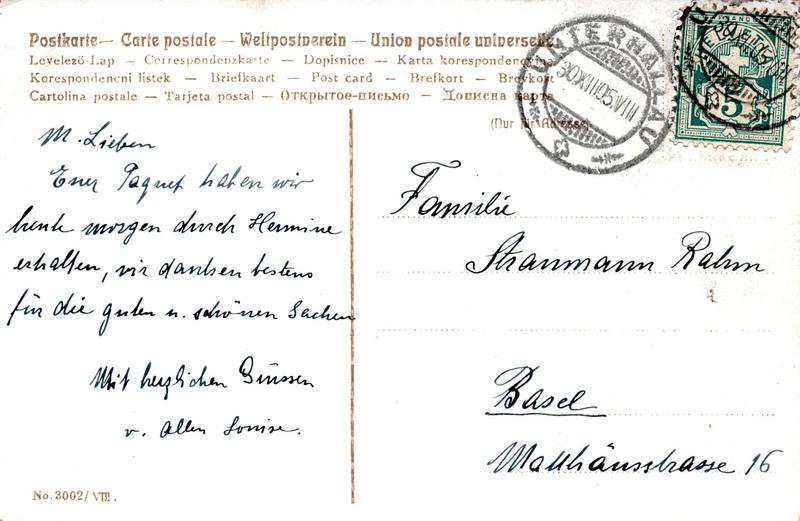 Postkarte — Carte postale — Weltpostverein — Union postale universelle
Levelező-Lap — Correspondenzkarte — Dopisnice — Karta korespondencyjna
Korespondencni listek — Briefkaart — Post card — Brefkort — Brevkort
Cartolina postale — Tarjeta postal — Открытое-письмо — Дописна карта
(Nur für Adresse)
UNTERHALLAU
30.XII.05.VIII
5
M. Lieben
Euer Paquet haben wir
heute morgen durch Hermine
erhalten, wir danken bestens
für die guten u. schönen Sachen
Mit herzlichen Grüssen
v. Allen Louise.
Familie
Straumann Rahm
Basel
Matthäusstrasse 16
No. 3002/VIII.